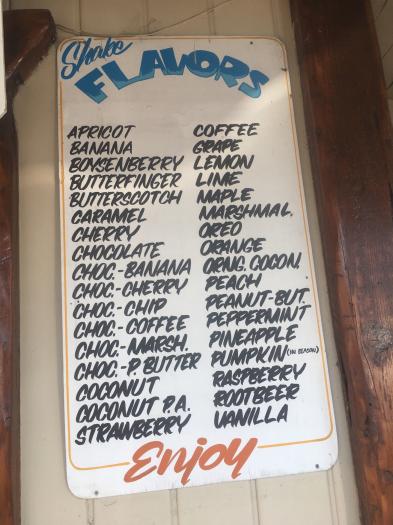 Shake
FLAVORS
APRICOT
BANANA
BOYSENBERRY
BUTTERFINGER
BUTTERSCOTCH
CARAMEL
CHERRY
CHOCOLATE
CHOC.-BANANA
CHOC.-CHERRY
CHOC.-CHIP
CHOC.-COFFEE
CHOC.-MARSH.
CHOC.-P. BUTTER
COCONUT
COCONUT P.A.
STRAWBERRY
COFFEE
GRAPE
LEMON
LIME
MAPLE
MARSHMAL.
OREO
ORANGE
ORNG. COCON.
PEACH
PEANUT-BUT.
PEPPERMINT
PINEAPPLE
PUMPKIN (IN SEASON)
RASPBERRY
ROOTBEER
VANILLA
Enjoy